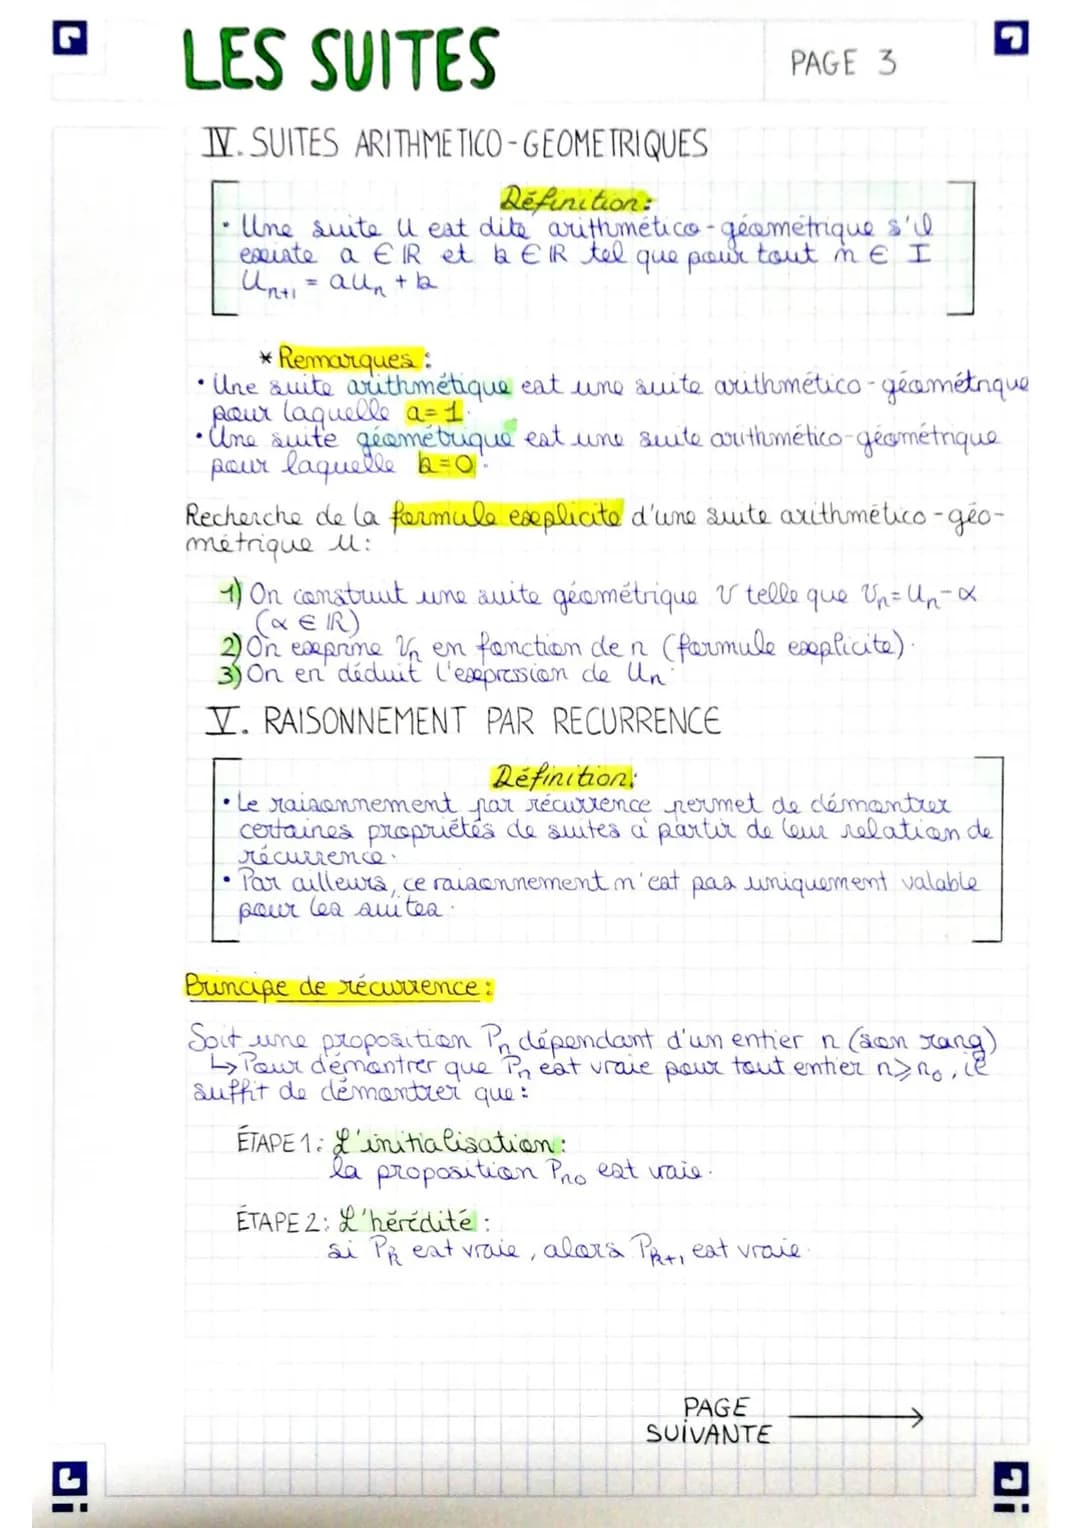 LES SUITES
PAGE 3
IV. SUITES ARITHMETICO-GEOMETRIQUES
Définition:
• Une suite U est dite arithmético-géométrique s'il
existe a ∈ ℝ et b ∈ ℝ tel que pour tout n ∈ I
Uₙ₊₁ = aUₙ + b
* Remarques :
• Une suite arithmétique est une suite arithmético-géométrique
pour laquelle a=1.
• Une suite géométrique est une suite arithmético-géométrique
pour laquelle b=0.
Recherche de la formule explicite d'une suite arithmético-géo-
métrique U:
1) On construit une suite géométrique V telle que Vₙ=Uₙ-α
(α ∈ ℝ)
2) On exprime Vₙ en fonction de n (formule explicite).
3) On en déduit l'expression de Uₙ.
V. RAISONNEMENT PAR RECURRENCE
Définition:
• Le raisonnement par récurrence permet de démontrer
certaines propriétés de suites à partir de leur relation de
récurrence.
• Par ailleurs, ce raisonnement n'est pas uniquement valable
pour les suites.
Principe de récurrence :
Soit une proposition Pₙ dépendant d'un entier n (son rang)
↳ Pour démontrer que Pₙ est vraie pour tout entier n⩾n₀, il
suffit de démontrer que :
ÉTAPE 1: L'initialisation :
la proposition Pn₀ est vraie.
ÉTAPE 2: L'hérédité :
si Pₖ est vraie, alors Pₖ₊₁ est vraie.
PAGE
SUIVANTE